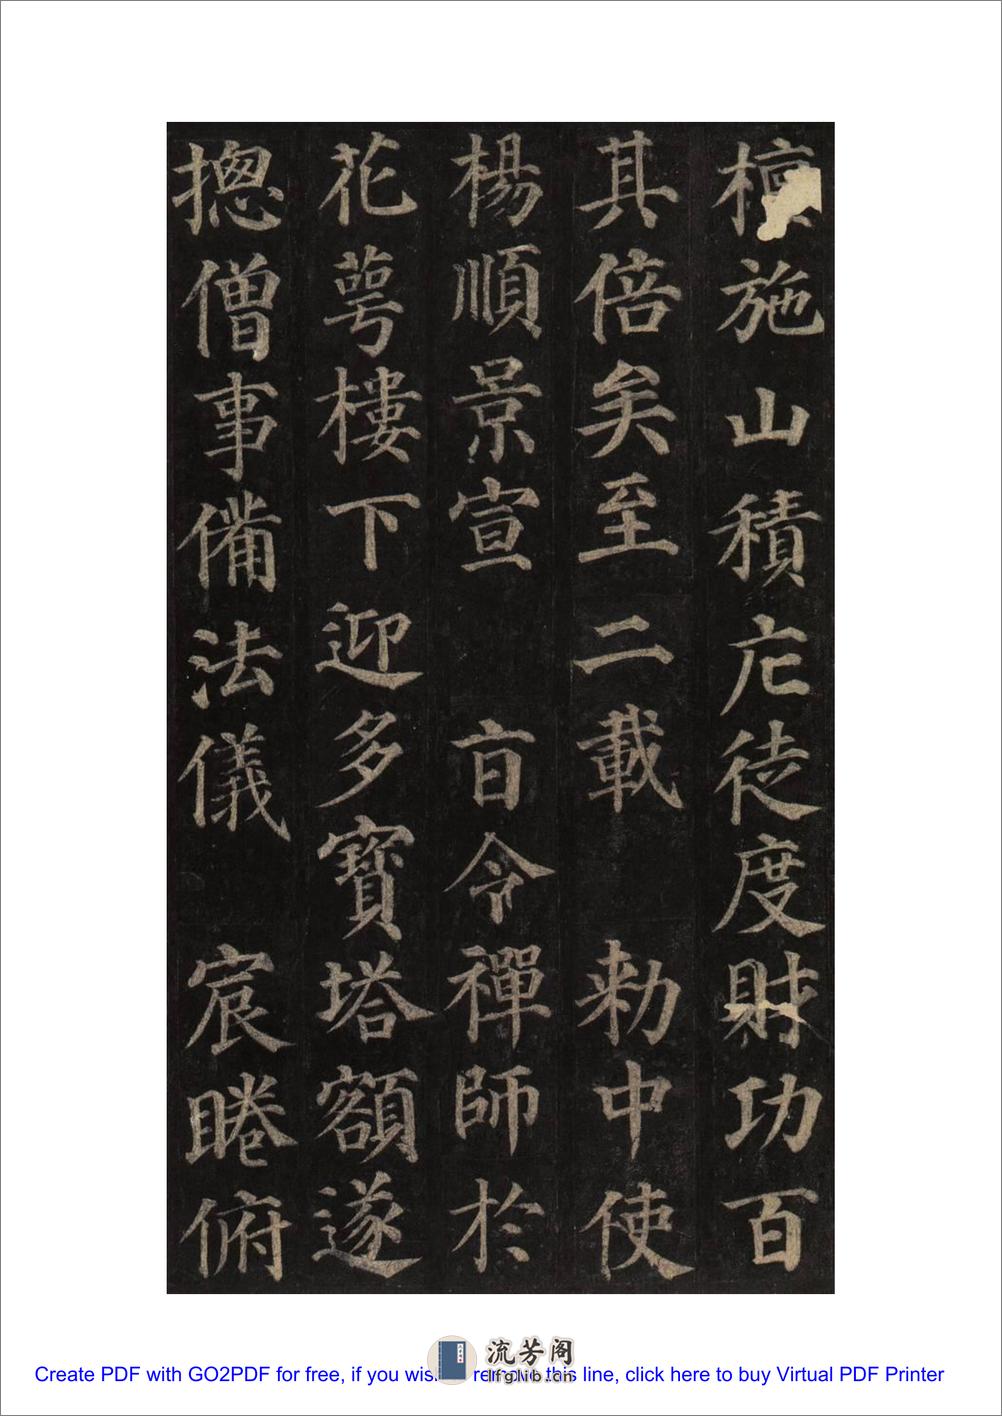 檀施山積庀徒度財功百
其倍矣至二載 勅中使
楊順景宣 旨令禪師於
花萼樓下迎多寶塔額遂
摠僧事備法儀 宸睠俯
流芳阁
lfglib.cn
Create PDF with GO2PDF for free, if you wish to remove this line, click here to buy Virtual PDF Printer